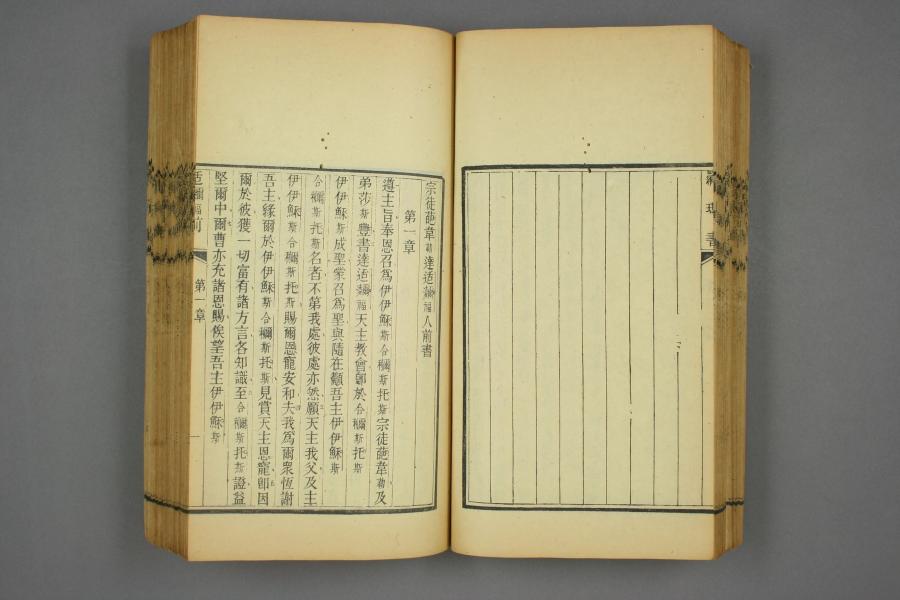 宗徒葩韋勒達适福人前書
第一章
遵主旨奉恩召為伊伊穌斯合穪斯托斯宗徒葩韋勒及
弟莎斯豐書達适福天主教會卽於合穪斯托斯
伊伊穌斯成聖蒙召為聖與隨在籲吾主伊伊穌斯
合穪斯托斯名者不第我處彼處亦然願天主我父及主
伊伊穌斯合穪斯托斯賜爾恩寵安和夫我為爾衆恆謝
吾主緣爾於伊伊穌斯合穪斯托斯見賞天主恩寵卽因
爾於彼獲一切富有諸方言各知識至合穪斯托斯證益
堅爾中爾曹亦充諸恩賜俟望吾主伊伊穌斯
适福前
第一章
一
書